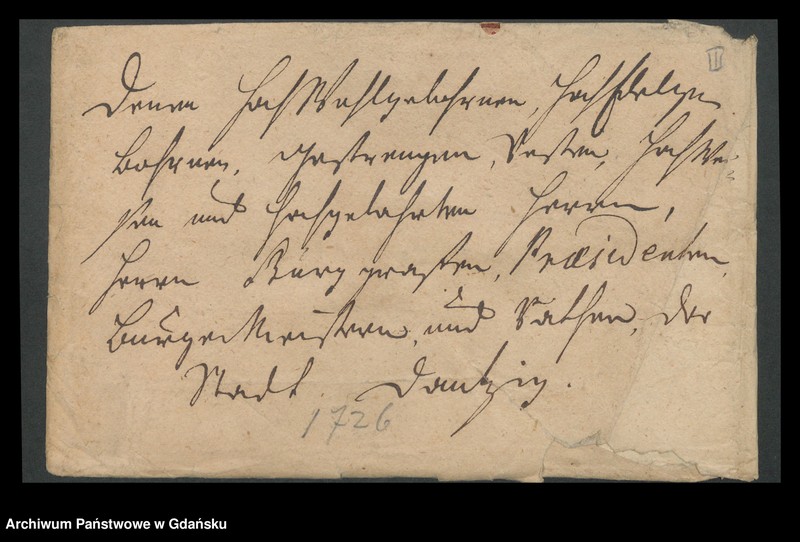 Denen HochWohlgebohrnen, HochEdelge-
bohrnen, Gestrengen, Vesten, HochWei-
sen und Hochgelahrten Herrn,
Herrn Burggraffen, Præsidenten,
BurgerMeistern, und Rathen, der
Stadt Dantzig.
1726
II
Archiwum Państwowe w Gdańsku